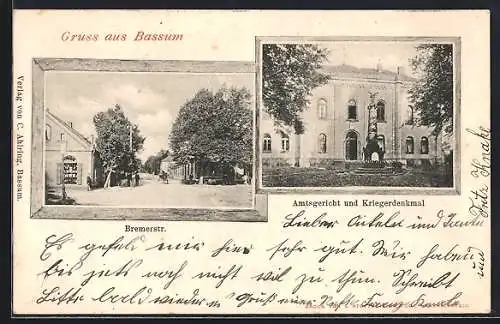 Gruss aus Bassum
Verlag von C. Ahlring, Bassum.
Bremerstr.
Amtsgericht und Kriegerdenkmal
Lieber Onkel und Tante
Es gefällt mir hier sehr gut. Wir haben
bis jetz noch nicht viel zu thun. Schreibt
Bitte bald wieder Gruß
und
Fritz